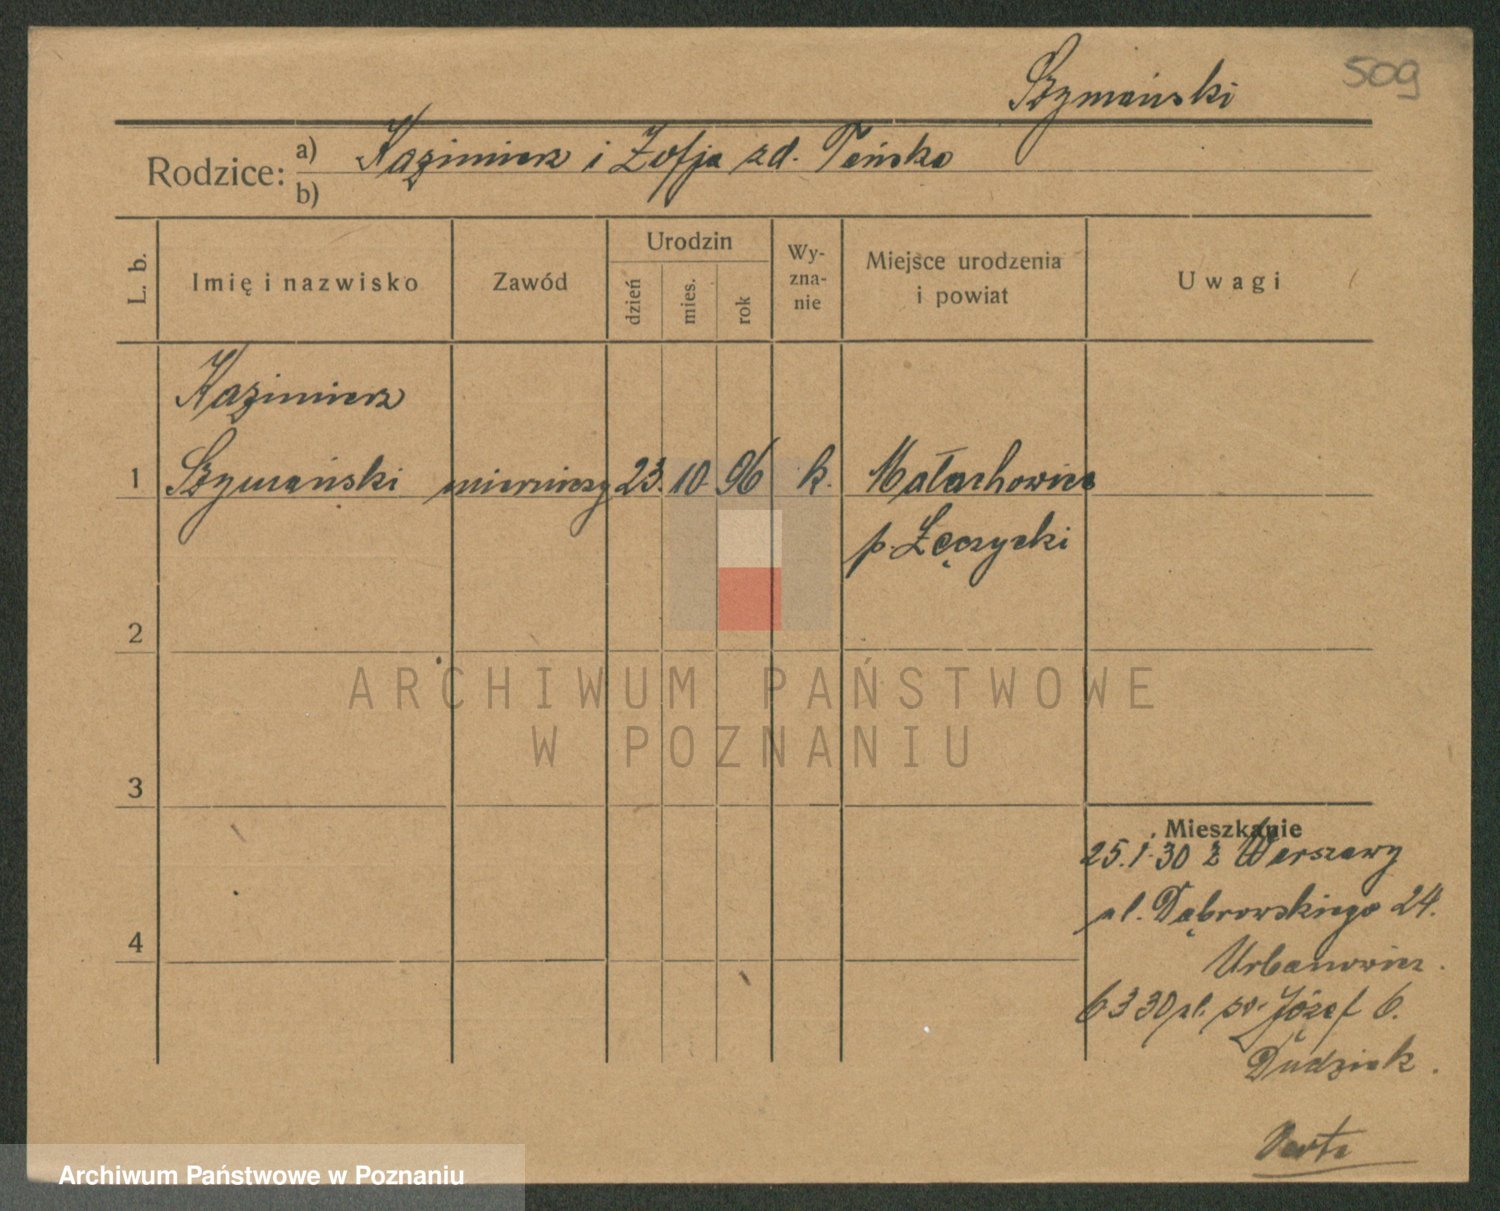 Szymański
509
Rodzice: a) Kazimierz i Zofja zd. Teńska
b)
L. b.
Imię i nazwisko
Zawód
Urodzin
dzień
mies.
rok
Wy-
zna-
nie
Miejsce urodzenia
i powiat
Uwagi
Kazimierz
1 Szymański mierniczy 23. 10. 96 k. Małachowice
p. Łęczycki
2
ARCHIWUM PAŃSTWOWE
W POZNANIU
3
Mieszkanie
25.1.30 z Warszawy
ul. Dąbrowskiego 24.
Urbanowicz.
6 3 30 pl. św. Józef 6.
Dudziak.
4
Verte
Archiwum Państwowe w Poznaniu